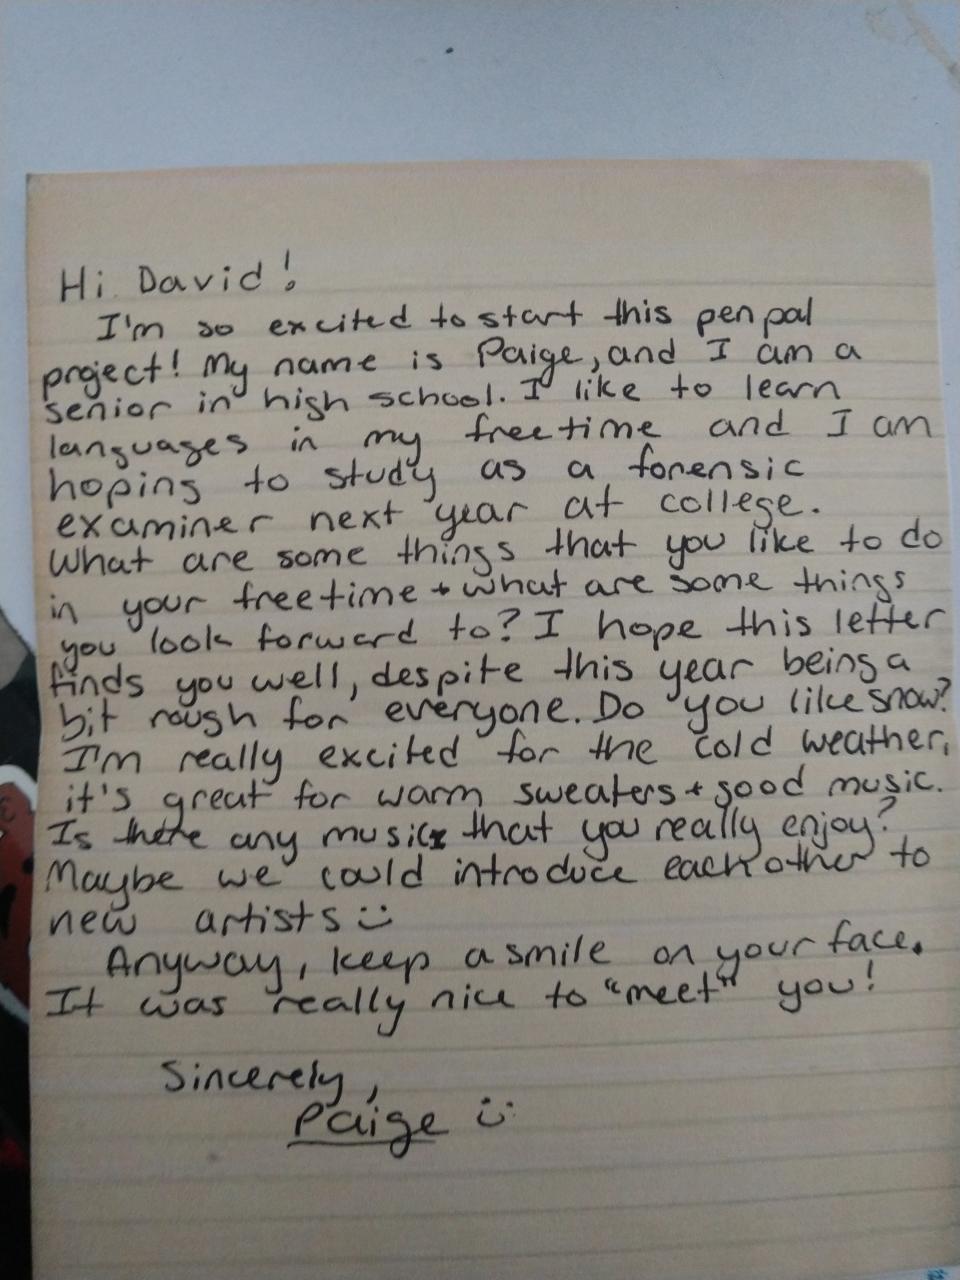 Hi David!
I'm so excited to start this pen pal
project! My name is Paige, and I am a
senior in high school. I like to learn
languages in my freetime and I am
hoping to study as a forensic
examiner next year at college.
What are some things that you like to do
in your freetime + what are some things
you look forward to? I hope this letter
finds you well, despite this year being a
bit rough for everyone. Do you like snow?
I'm really excited for the cold weather,
it's great for warm sweaters + good music.
Is there any music that you really enjoy?
Maybe we could introduce each other to
new artists :)
Anyway, keep a smile on your face.
It was really nice to "meet" you!
Sincerely,
Paige :)